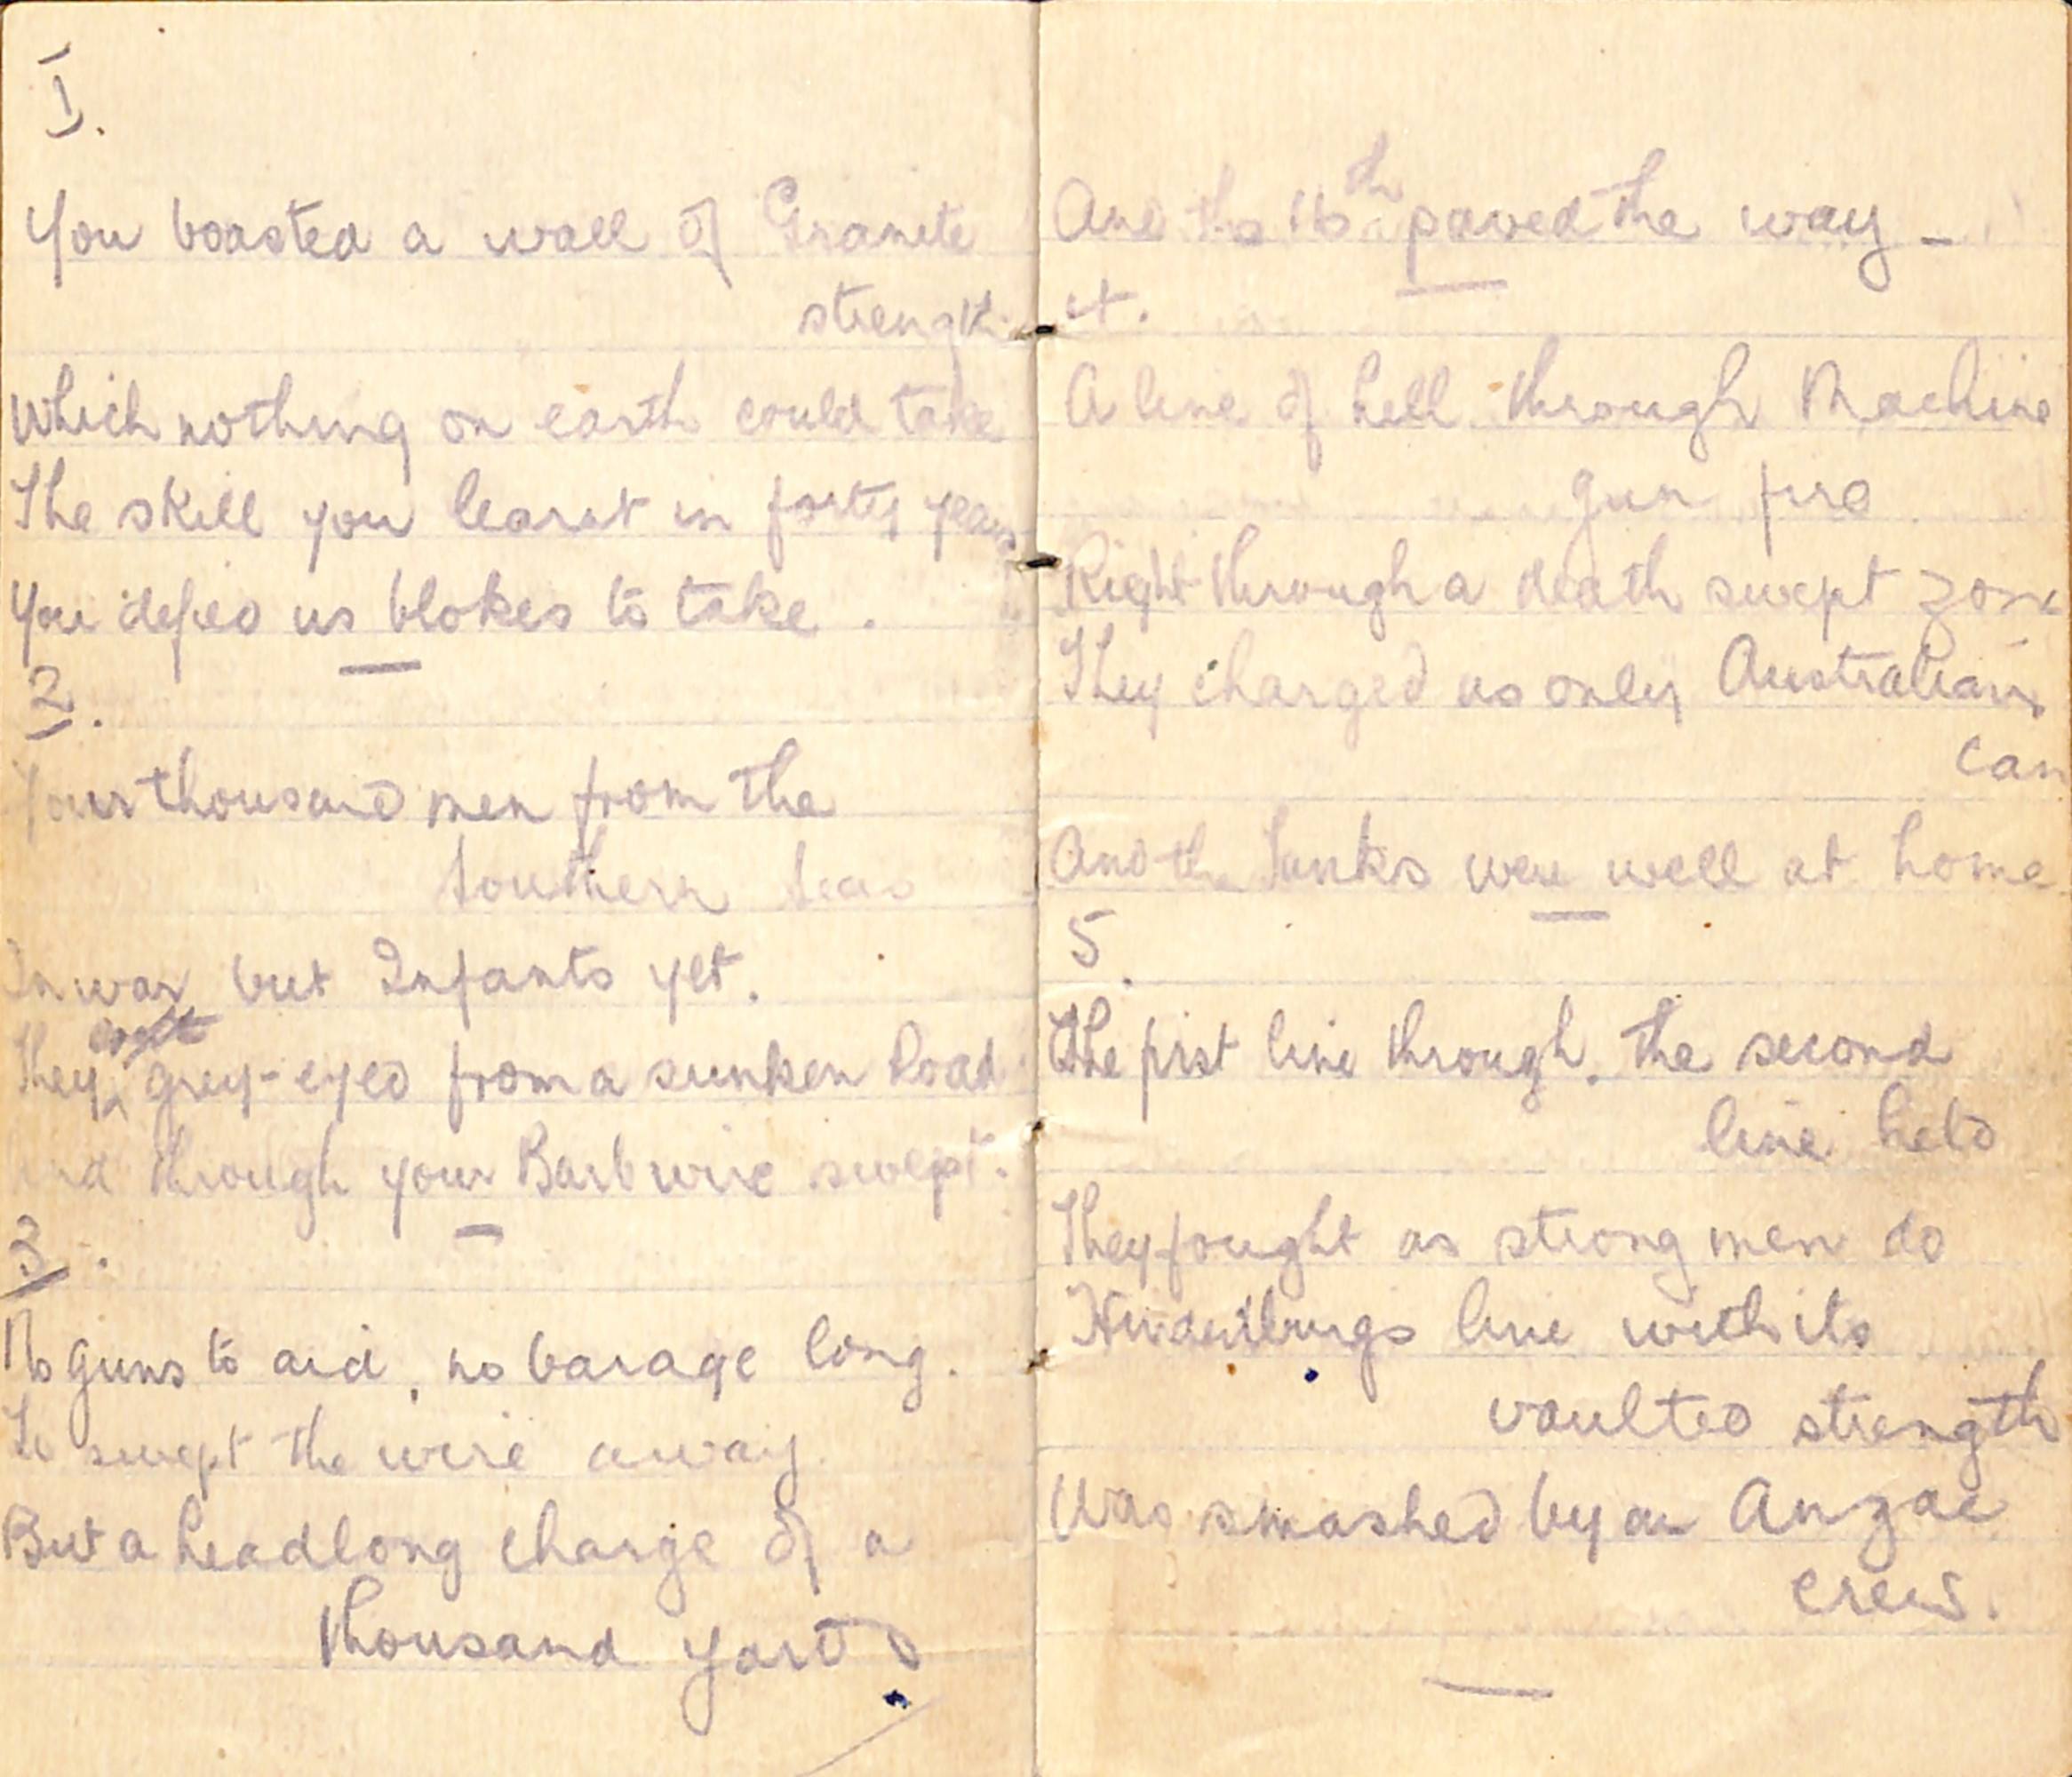 1.
You boasted a wall of Granite
strength.
Which nothing on earth could take
The skill you learnt in forty years
You defied us blokes to take.
2.
Four thousand men from the
Southern Seas
In war but Infants yet.
They grey-eyed from a sunken Road
And through your Barb wire swept.
3.
No guns to aid, no barage long.
To swept the wire away
But a headlong charge of a
thousand yards
And the 16th paved the way -
4.
A line of hell through Machine
gun fire
Right through a death swept zone
They charged as only Australians
can
And the Tanks were well at home
5.
The first line through. the second
line held
They fought as strong men do
Hindenburgs line with its
vaulted strength
Was smashed by an Anzac
crew.